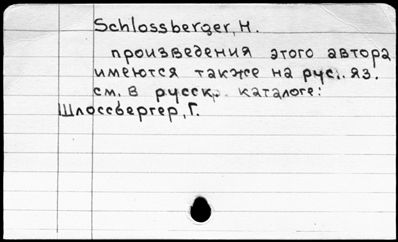 Schlossberger, H.
произведения этого автора
имеются также на рус. яз.
см. в русск. каталоге:
Шлоссбергер, Г.